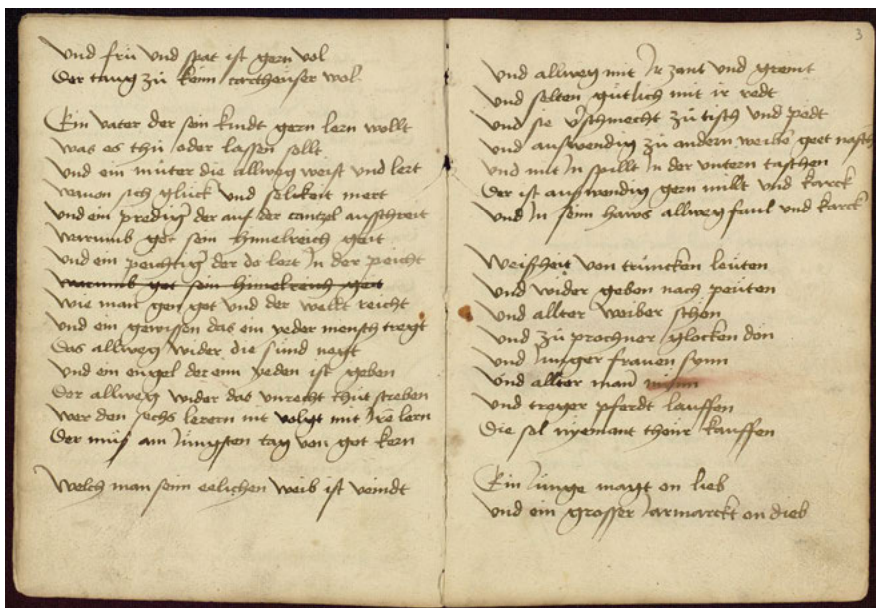 und frü und spat ist gern vol
Der taug zu keim cartheuser wol
Ein vater der sein kindt gern lern wollt
was es thu oder lassen sollt
und ein muter die allweg weist und lert
wauon sich gluck und selikeit mert
und ein prediger der auf der cantzel auschreit
warumb got sein himelreich geit
und ein peichtiger der do lert in der peicht
warumb got sein himelreich geit
wie man gen got und der wellt reicht
und ein gewissen das ein yeder mensch tregt
Das allweg wider die sund
und ein engel der eim yeden ist geben
Der allweg wider das unrecht thut streben
wer den sechs lerern nit volgt mit irē lern
Der mus am jüngsten tag von got kern
Welch man seim eelichen weib ist veindt
3
und allweg mit ir zant und greint
und selten gütlich mit ir redt
und sie verschmecht zu tisch und pedt
und auswendig zu andern weibē geet nasch
und mit in spillt in der untern taschen
Der ist auswendig gern millt und
und in seim haws allweg faul und karck
Weissheit von trüncken leuten
und wider geben nach peuten
und allter weiber schön
und zu prochner glocken don
und junger frauen synn
und allter man mynn
und treger pferdt lauffen
Die sol nyemant theur kauffen
Ein junge magt on lieb
und ein grosser jarmarckt on dieb